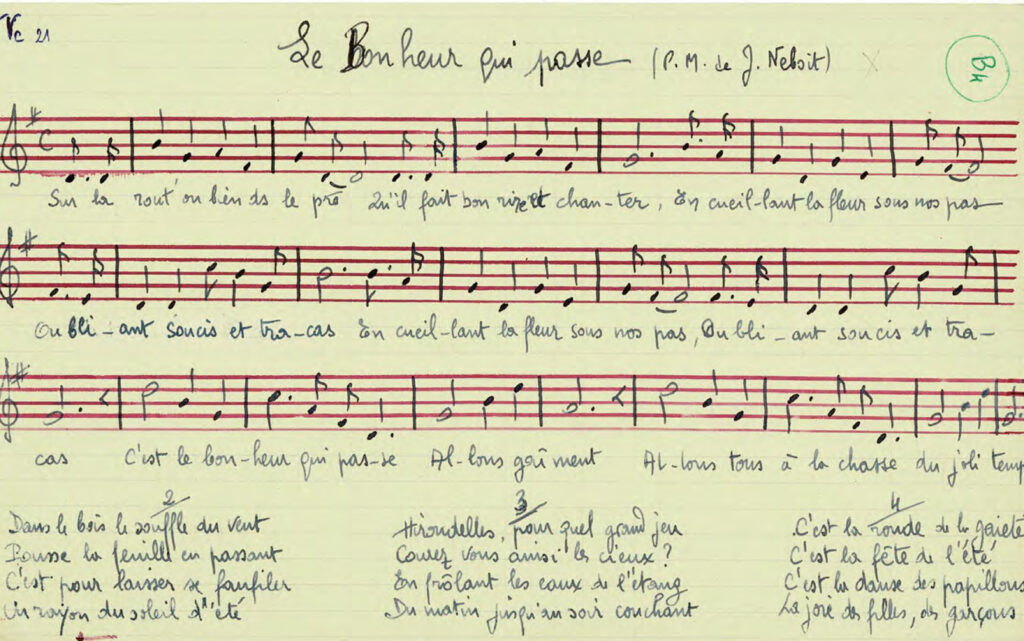 Vc 21
Le Bonheur qui passe (P.M. de J. Neboit)
B4
Sur la rout' ou bien ds le pré Qu'il fait bon rire et chan-ter, En cueil-lant la fleur sous nos pas
Oubli-ant soucis et tra-cas En cueil-lant la fleur sous nos pas, Oubli-ant soucis et tra-
cas C'est le bon-heur qui pas-se Al-lons gaîment Al-lons tous à la chasse du joli temp
2
Dans le bois le souffle du vent
Pousse la feuille en passant
C'est pour laisser se faufiler
Un rayon du soleil d'été
3
Hirondelles, pour quel grand jeu
Courez vous ainsi les cieux?
En frôlant les eaux de l'étang
Du matin jusqu'au soir couchant
4
C'est la ronde de la gaieté
C'est la fête de l'été
C'est la danse des papillons
La joie des filles, des garçons